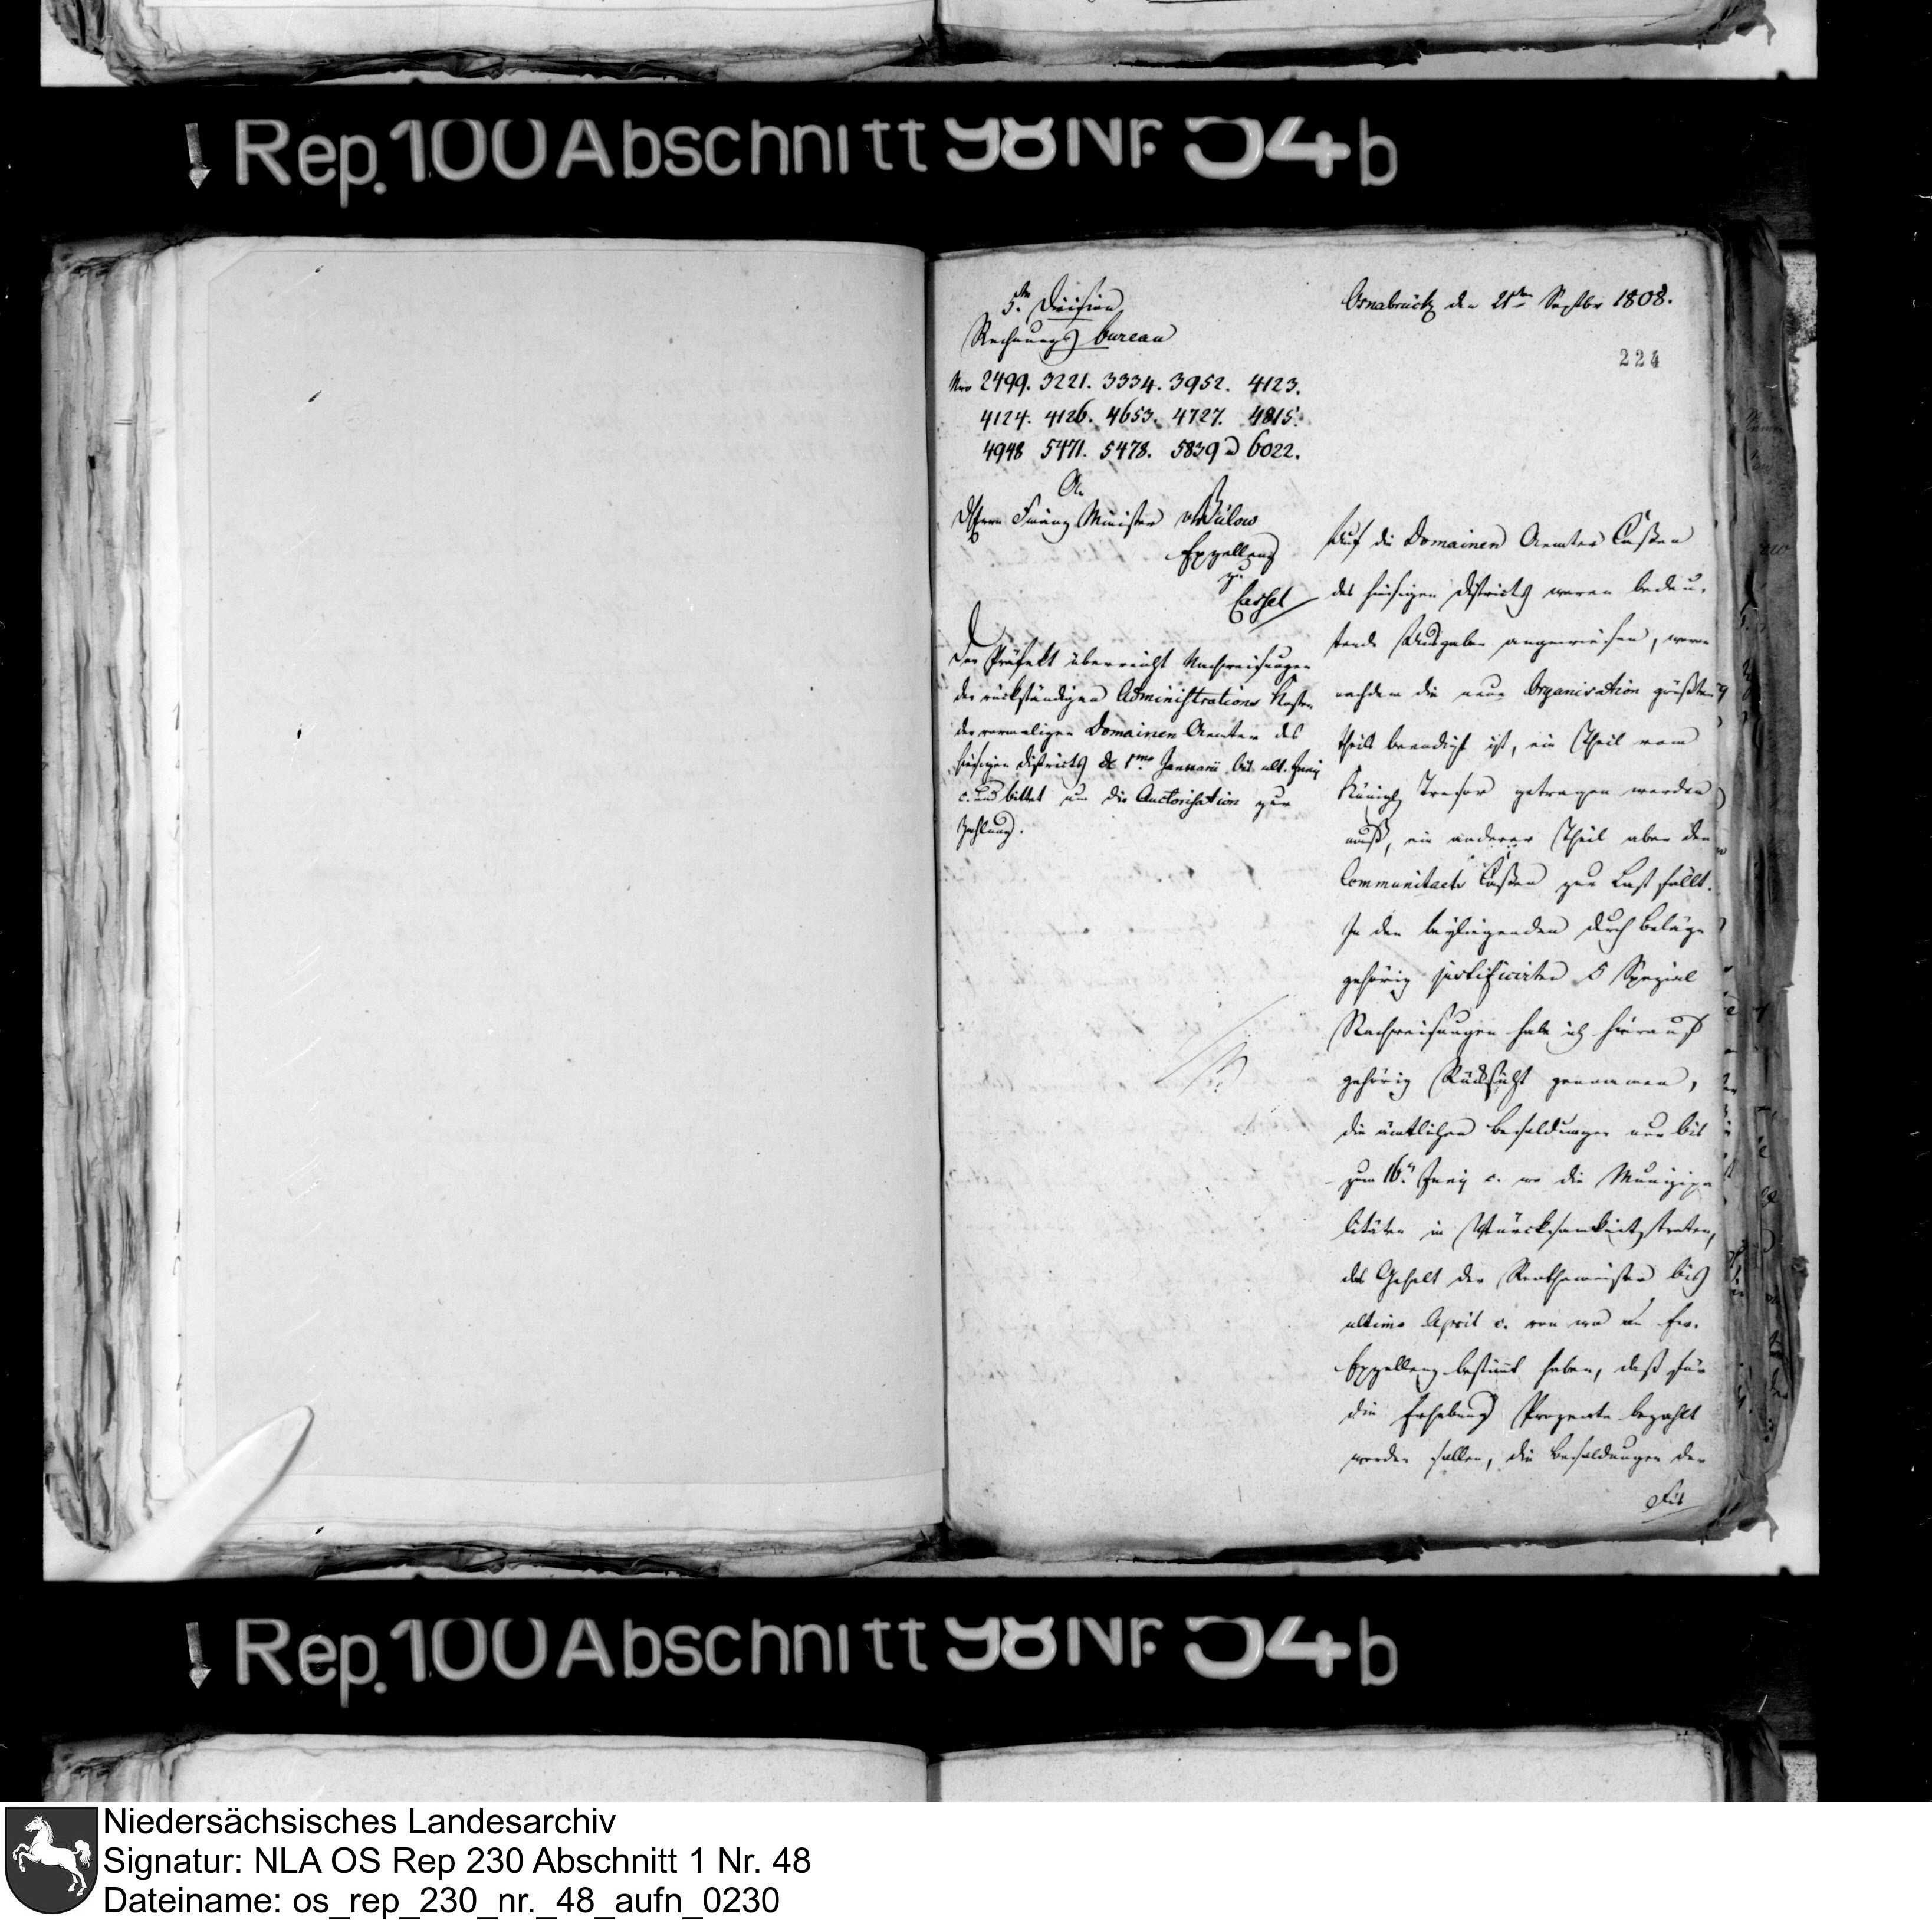 Rep. 100 Abschnitt 98 Nr. 54 b
5te Division
Rechnungs bureau
Nro 2499. 3221. 3334. 3952. 4123.
4124. 4126. 4653. 4727. 4815.
4948 5471. 5478. 5839 6022.
An
Herrn Finanz Minister v Bülow
Exzellenz
zu
Cassel
Der Präfekt überreicht Nachweisungen
der rückständigen Administrations Kosten
der vormaligen Domainen Aemter des
hiesigen Districts de 1mo Januarii bis ult. Juny
c. und bittet um die Auctorisation zur
Zahlung.
Osnabrück den 21ten Septbr 1808.
224
Auf die Domainen Aemter Caßen
des hiesigen Districts waren bedeu-
tende Ausgaben angewiesen, wovon
nachdem die neue Organisation größten
theils beendigt ist, ein Theil vom
Königl Tresor getragen werden
muß, ein anderer Theil aber den
Communitaets Caßen zur Last fällt.
In den beyliegenden durch Beläge
gehörig justificirten 5 Spezial
Nachweisungen habe ich hierauf
gehörig Rücksicht genommen,
die ämtlichen Besoldungen nur bis
zum 16n Juny c. wo die Munizipa
litäten in Würcksamkeit traten,
das Gehalt der Renthemeister bis
ultimo April c. von wo an Ew.
Exzellenz bestimt haben, daß für
die Erhebung Prozente bezahlt
werden sollen, die Besoldungen der
Rep. 100 Abschnitt 98 Nr. 54 b
Niedersächsisches Landesarchiv
Signatur: NLA OS Rep 230 Abschnitt 1 Nr. 48
Dateiname: os_rep_230_nr._48_aufn_0230